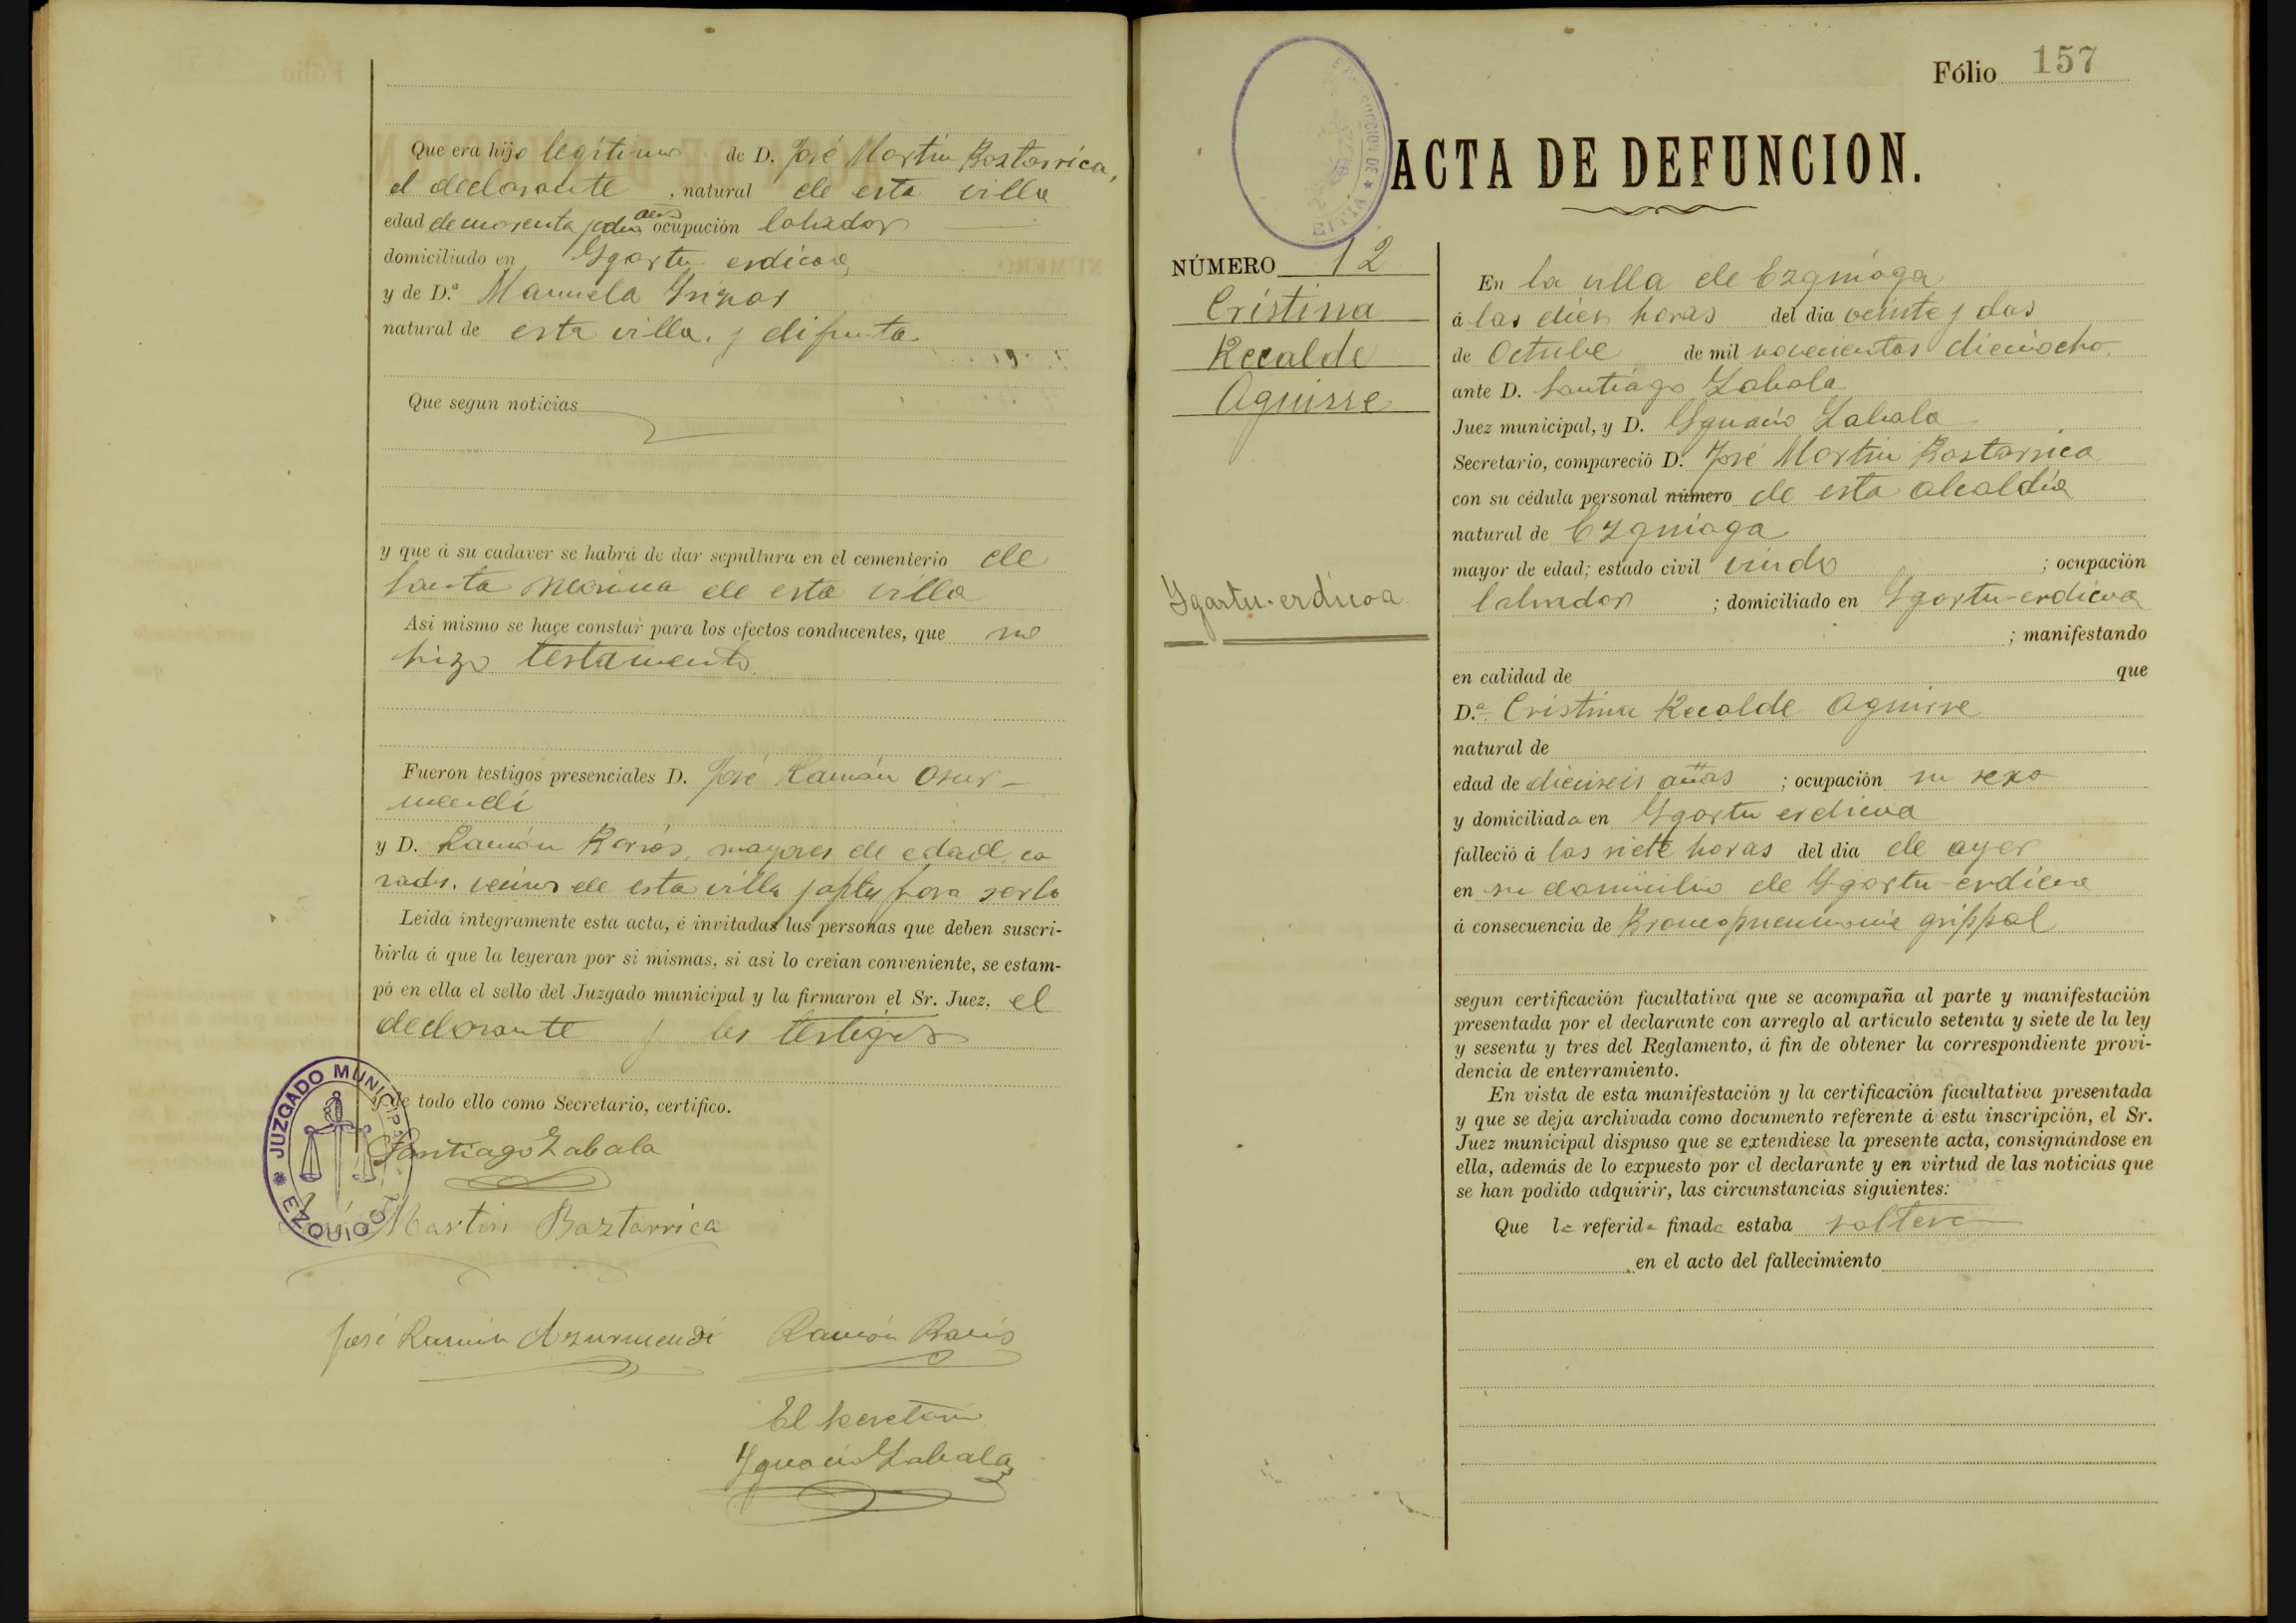 Que era hijo legitimo de D. José Martin Baztarrica,
el declarante, natural de esta villa
edad de años ocupación labrador
domiciliado en Ygartu erdicoa
y de D.ª Manuela
natural de esta villa, y difunta
Que segun noticias
y que á su cadaver se habrá de dar sepultura en el cementerio de
Santa Marina de esta villa
Asi mismo se haçe constar para los efectos conducentes, que no
hizo testamento.
Fueron testigos presenciales D. José Ramón Asur-
mendi
y D. Ramón Barrós, mayores de edad, ca
sados, vecinos de esta villa y aptos para serlo
Leida integramente esta acta, é invitadas las personas que deben suscri-
birla á que la leyeran por si mismas, si asi lo creian conveniente, se estam-
pó en ella el sello del Juzgado municipal y la firmaron el Sr. Juez. el
declarante y los testigos
y de todo ello como Secretario, certifico.
JUZGADO MUNICIPAL
Santiago Zabala
Martin Baztarrica
José Ramón Azurmendi Ramón Barrós
El Secretario
Ygnacio Zabala
Fólio 157
ACTA DE DEFUNCION.
NÚMERO 12
Cristina
Recalde
Aguirre
Ygartu-erdicoa
En la villa de Ezquioga
á las diez horas del dia veinte y dos
de Octubre de mil novecientos dieciocho.
ante D. Santiago Zabala
Juez municipal, y D. Ygnacio Zabala
Secretario, compareció D. José Martin Baztarrica
con su cédula personal número de esta alcaldía
natural de Ezquioga
mayor de edad; estado civil viudo ; ocupación
labrador ; domiciliado en Ygartu-erdicoa
; manifestando
en calidad de que
D.ª Cristina Recalde Aguirre
natural de
edad de dieciseis años ; ocupación su sexo
y domiciliada en Ygartu erdicoa
falleció á las siete horas del dia de ayer
en su domicilio de Ygartu-erdicoa
á consecuencia de Broncopneumonie grippal
segun certificación facultativa que se acompaña al parte y manifestación
presentada por el declarante con arreglo al articulo setenta y siete de la ley
y sesenta y tres del Reglamento, á fin de obtener la correspondiente provi-
dencia de enterramiento.
En vista de esta manifestación y la certificación facultativa presentada
y que se deja archivada como documento referente á esta inscripción, el Sr.
Juez municipal dispuso que se extendiese la presente acta, consignándose en
ella, además de lo expuesto por el declarante y en virtud de las noticias que
se han podido adquirir, las circunstancias siguientes:
Que la referida finada estaba soltera
en el acto del fallecimiento